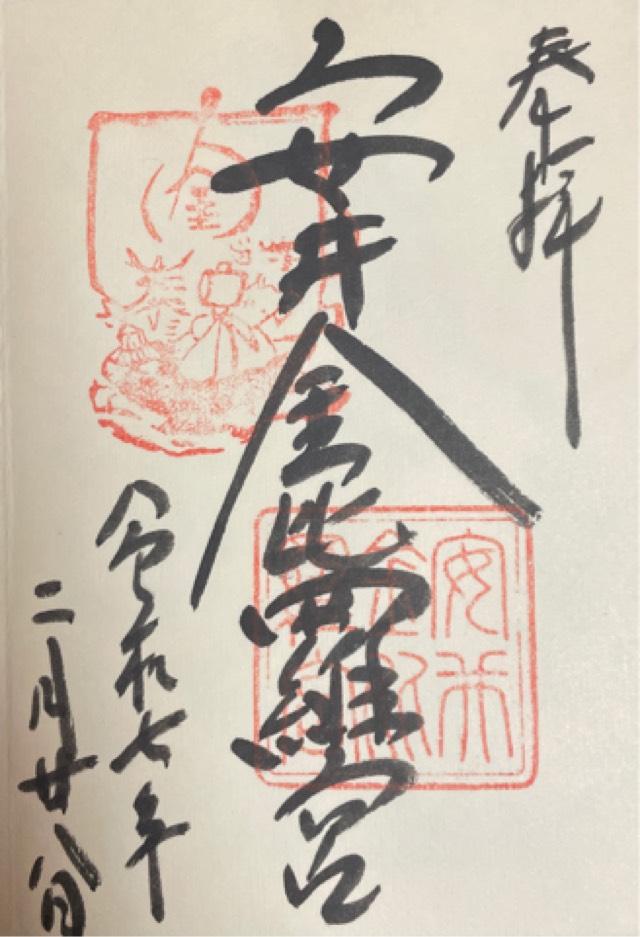 奉拝
安井金比羅宮
令和七年
二月廿八日
安井